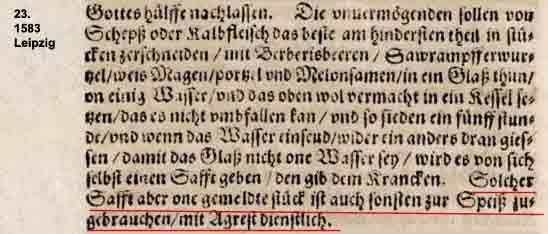 23.
1583
Leipzig
Gottes hülffe nachlassen. Die vnuermögenden sollen von
Schepß oder Kalbfleisch das beste am hindersten theil in stü-
cken zerschneiden / mit Berberisbeeren / Sawrampfferwur-
tzel/weis Magen/portzel vnd Melonsamen/in ein Glaß thun/
on einig Wasser/vnd das oben wol vermacht in ein Kessel se-
tzen/das es nicht vmbfallen kan/ vnd so sieden ein fünff stun-
de/vnd wenn das Wasser einseud/wider ein anders dran gies-
sen / damit das Glaß nicht one Wasser sey / wird es von sich
selbst einen Safft geben / den gib dem Krancken. Solcher
Safft aber one gemeldte stück ist auch sonsten zur Speiß zu-
gebrauchen/mit Agrest dienstlich.